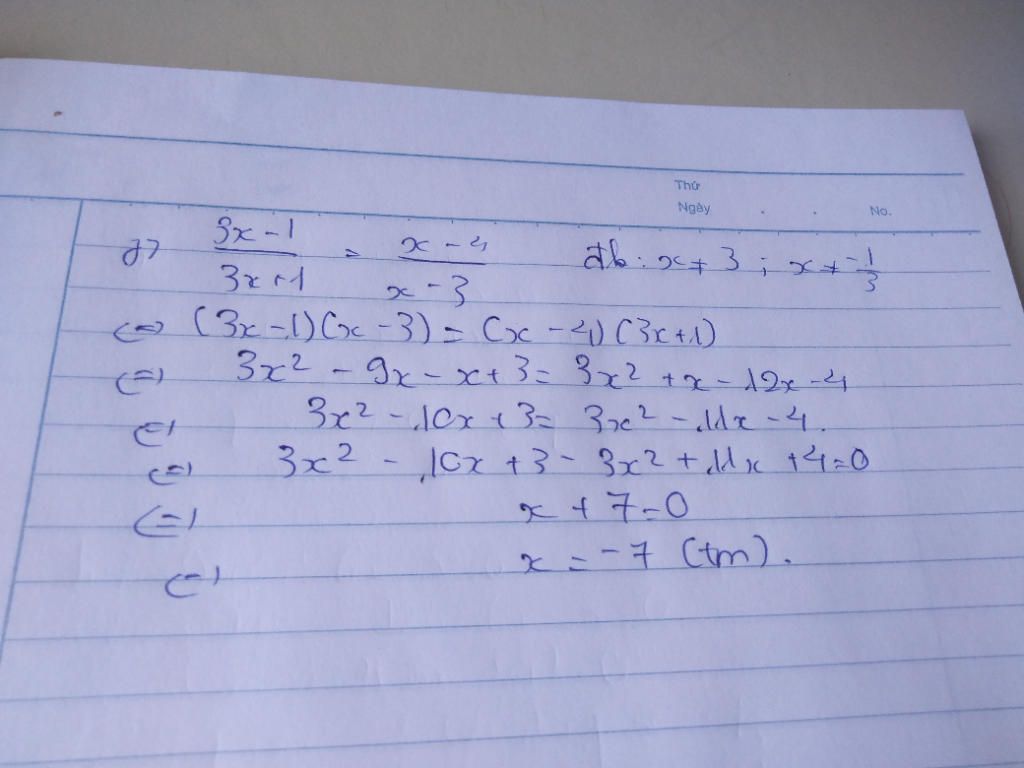 Thứ
Ngày . . No.
g) \frac{3x-1}{3x+1} = \frac{x-4}{x-3} đk: x ≠ 3; x ≠ -\frac{1}{3}
<=> (3x-1)(x-3) = (x-4)(3x+1)
<=> 3x² - 9x - x + 3 = 3x² + x - 12x - 4
<=> 3x² - 10x + 3 = 3x² - 11x - 4.
<=> 3x² - 10x + 3 - 3x² + 11x + 4 = 0
<=> x + 7 = 0
<=> x = -7 (tm).